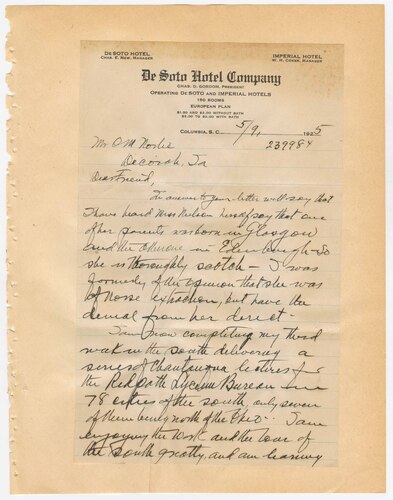 DE SOTO HOTEL
CHAS. E. NEW, MANAGER
IMPERIAL HOTEL
W. H. COKER, MANAGER
De Soto Hotel Company
CHAS. D. GORDON, PRESIDENT
OPERATING DE SOTO AND IMPERIAL HOTELS
150 ROOMS
EUROPEAN PLAN
$1.50 AND $2.00 WITHOUT BATH
$2.00 TO $3.00 WITH BATH
COLUMBIA, S. C. 5/9, 1925
239984
Mr. O M Norlie
Decorah, Ia
Dear Friend,
In answer to your letter will say that
I have heard Miss Nielsen herself say that one
of her parents was born in Glasgow
and the other one in Edenburgh - So
she is thoroughly scotch - I was
formerly of the opinion that she was
of Norse extraction, but have the
denial from her direct -
I am now completing my third
week in the south delivering a
series of Chautauqua lectures for
the Redpath Lyceum Bureau in
78 cities of the south, only seven
of them being north of the Ohio. I am
enjoying the work and the tour of
the South greatly, and am learning